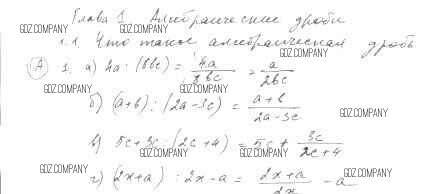 Глава 1 Алгебраические дроби
GDZ.COMPANY GDZ.COMPANY GDZ.COMPANY
1.1 Что такое алгебраическая дробь
GDZ.COMPANY GDZ.COMPANY GDZ.COMPANY
А 1. а) 4a : (8bc) = 4a/8bc = a/2bc
GDZ.COMPANY GDZ.COMPANY
б) (a+b) : (2a-3c) = a+b/2a-3c
GDZ.COMPANY
в) 5c+3c : (2c+4) = 5c + 3c/2c+4
GDZ.COMPANY GDZ.COMPANY GDZ.COMPANY
г) (2x+a) : 2x-a = 2x+a/2x - a
GDZ.COMPANY GDZ.COMPANY